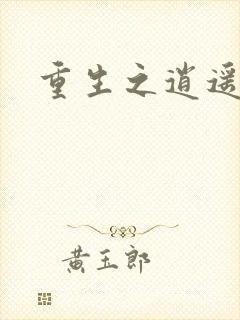 重生之逍遥
黄玉郎